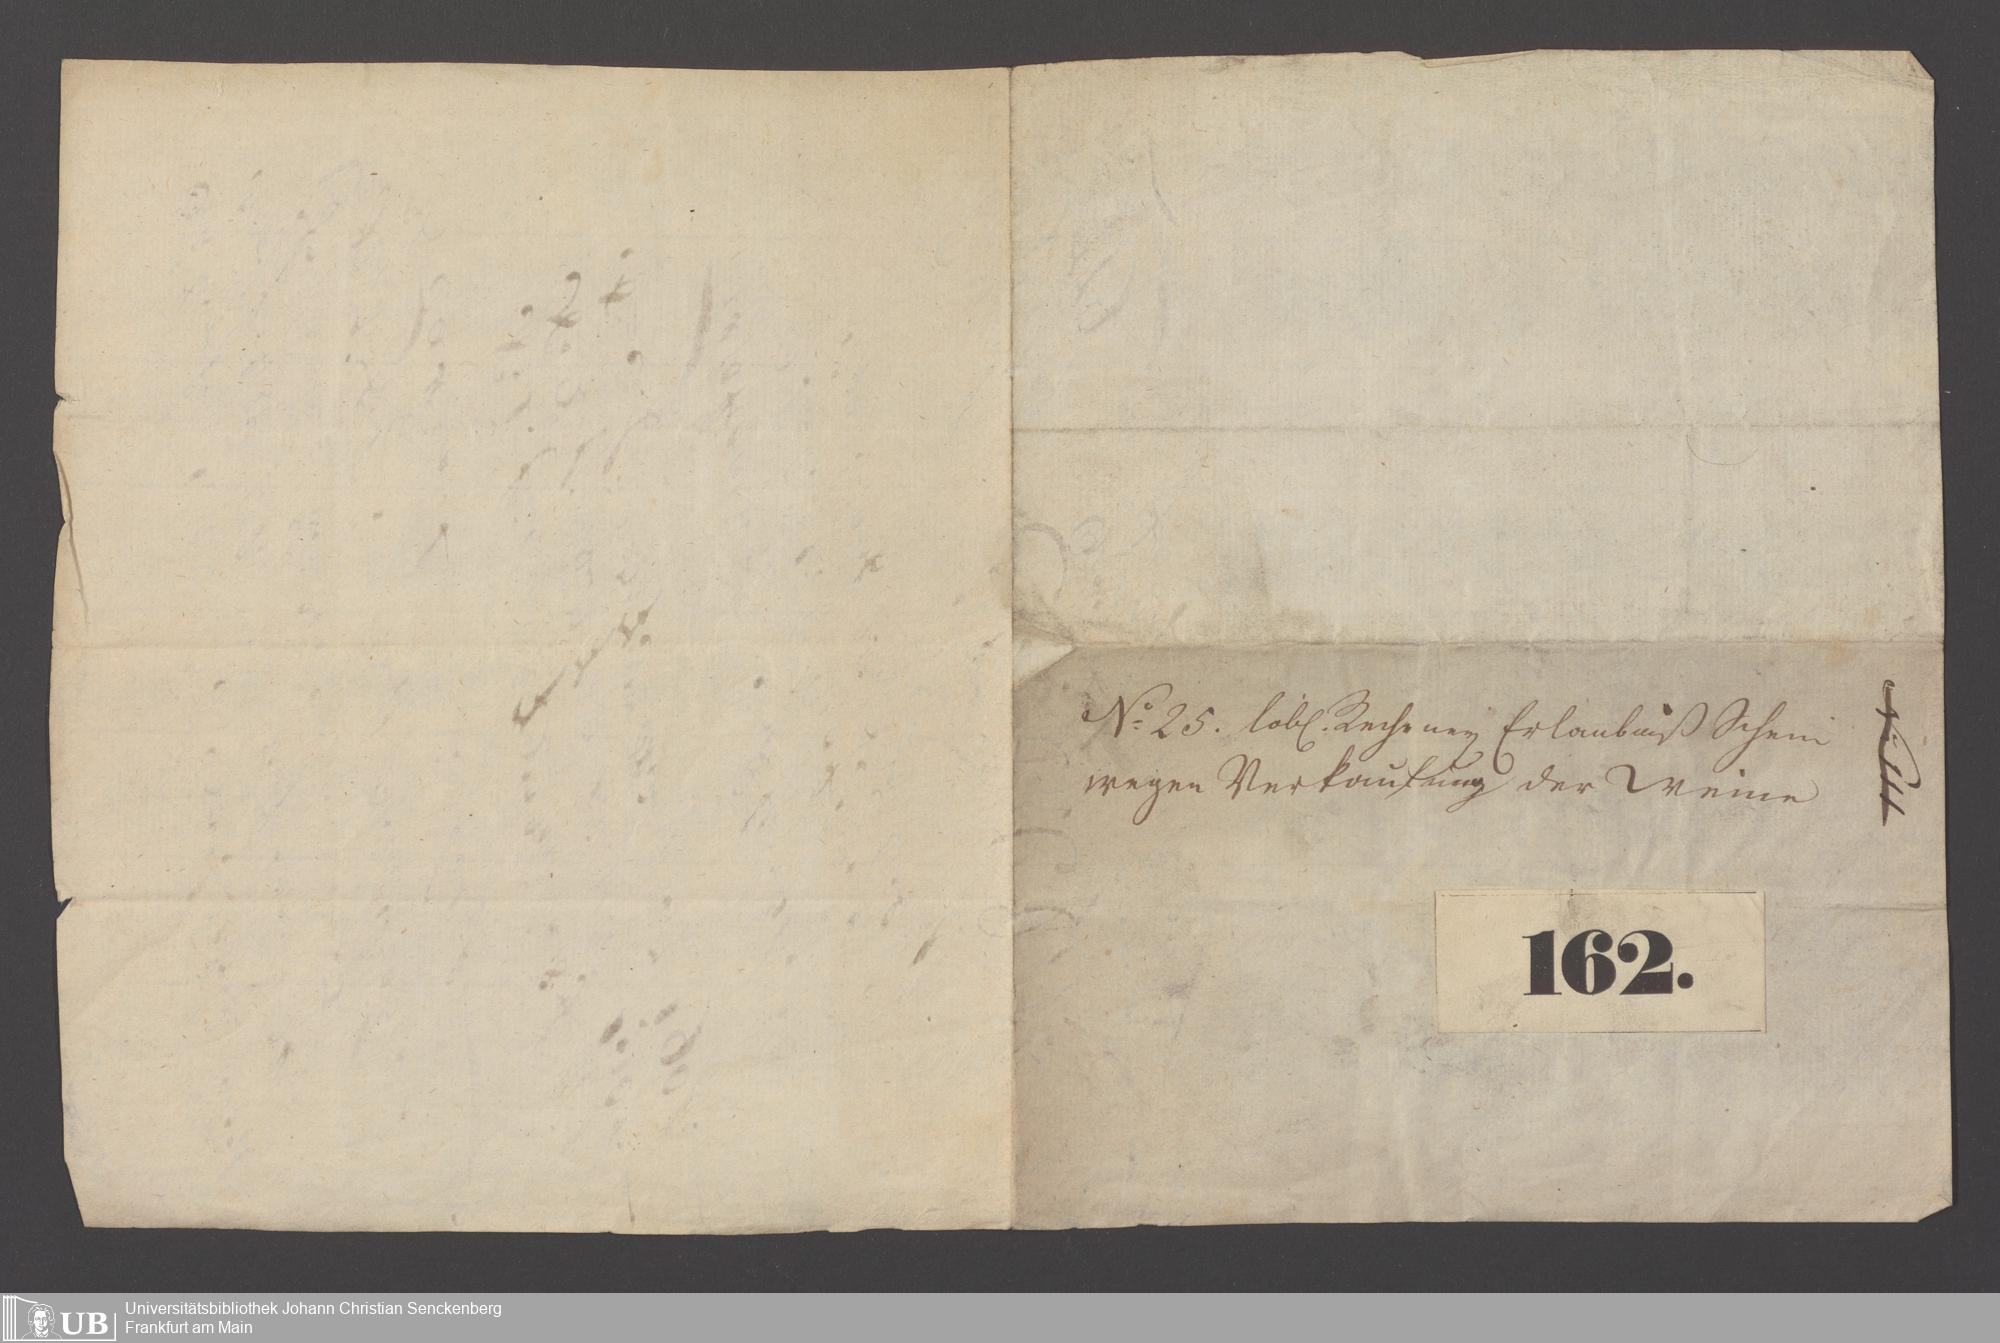 No 25. löbl. Recheney Erlaubniß Schein
wegen Verkaufung der Weine
162.
UB
Universitätsbibliothek Johann Christian Senckenberg
Frankfurt am Main